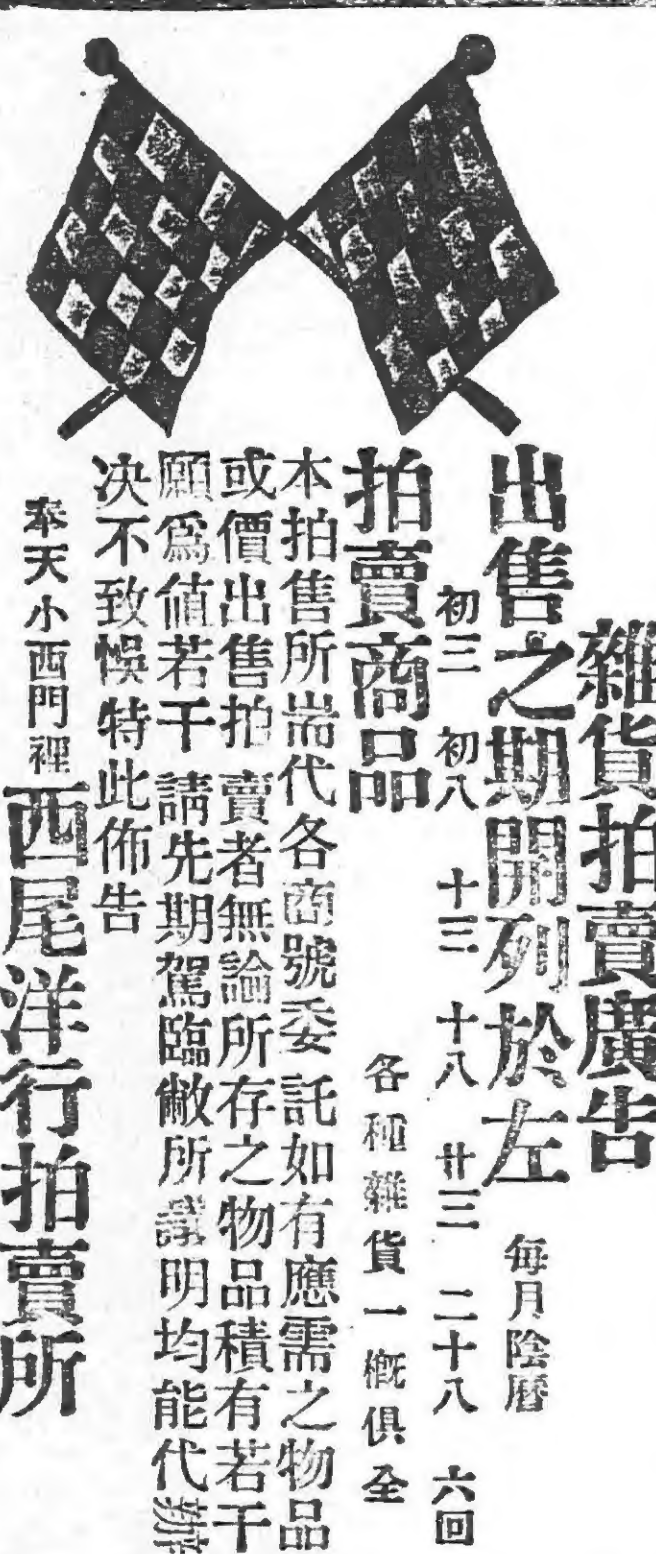 雜貨拍賣廣告
出售之期開列於左 每月陰曆
初三 初八 十三 十八 廿三 二十八 六回
拍賣商品 各種雜貨一概俱全
本拍售所耑代各商號委託如有應需之物品
或價出售拍賣者無論所存之物品積有若干
願爲値若干請先期駕臨敝所議明均能代辦
决不致悞特此佈告
奉天小西門裡 西尾洋行拍賣所